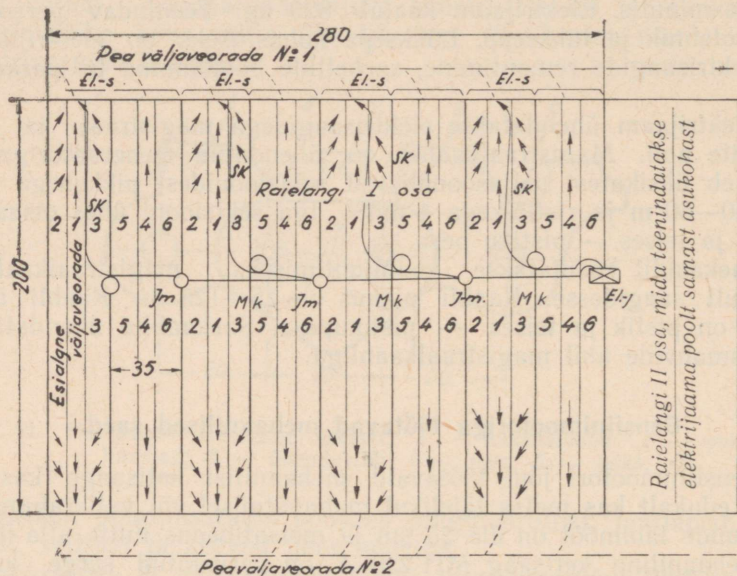 280
Pea väljaveorada № 1
El.-s El.-s El.-s El.-s
SK SK SK SK
Raielangi I osa
2 1 3 5 4 6 2 1 3 5 4 6 2 1 3 5 4 6 2 1 3 5 4 6
200
Jm Mk Jm Mk J-m. Mk El-j
3 5 4 6 2 1 3 5 4 6 2 1 3 5 4 6 2 1 3 5 4 6
35
Esialgne
väljaveorada
Raielangi II osa, mida teenindatakse
elektrijaama poolt samast asukohast
Peaväljaveorada № 2